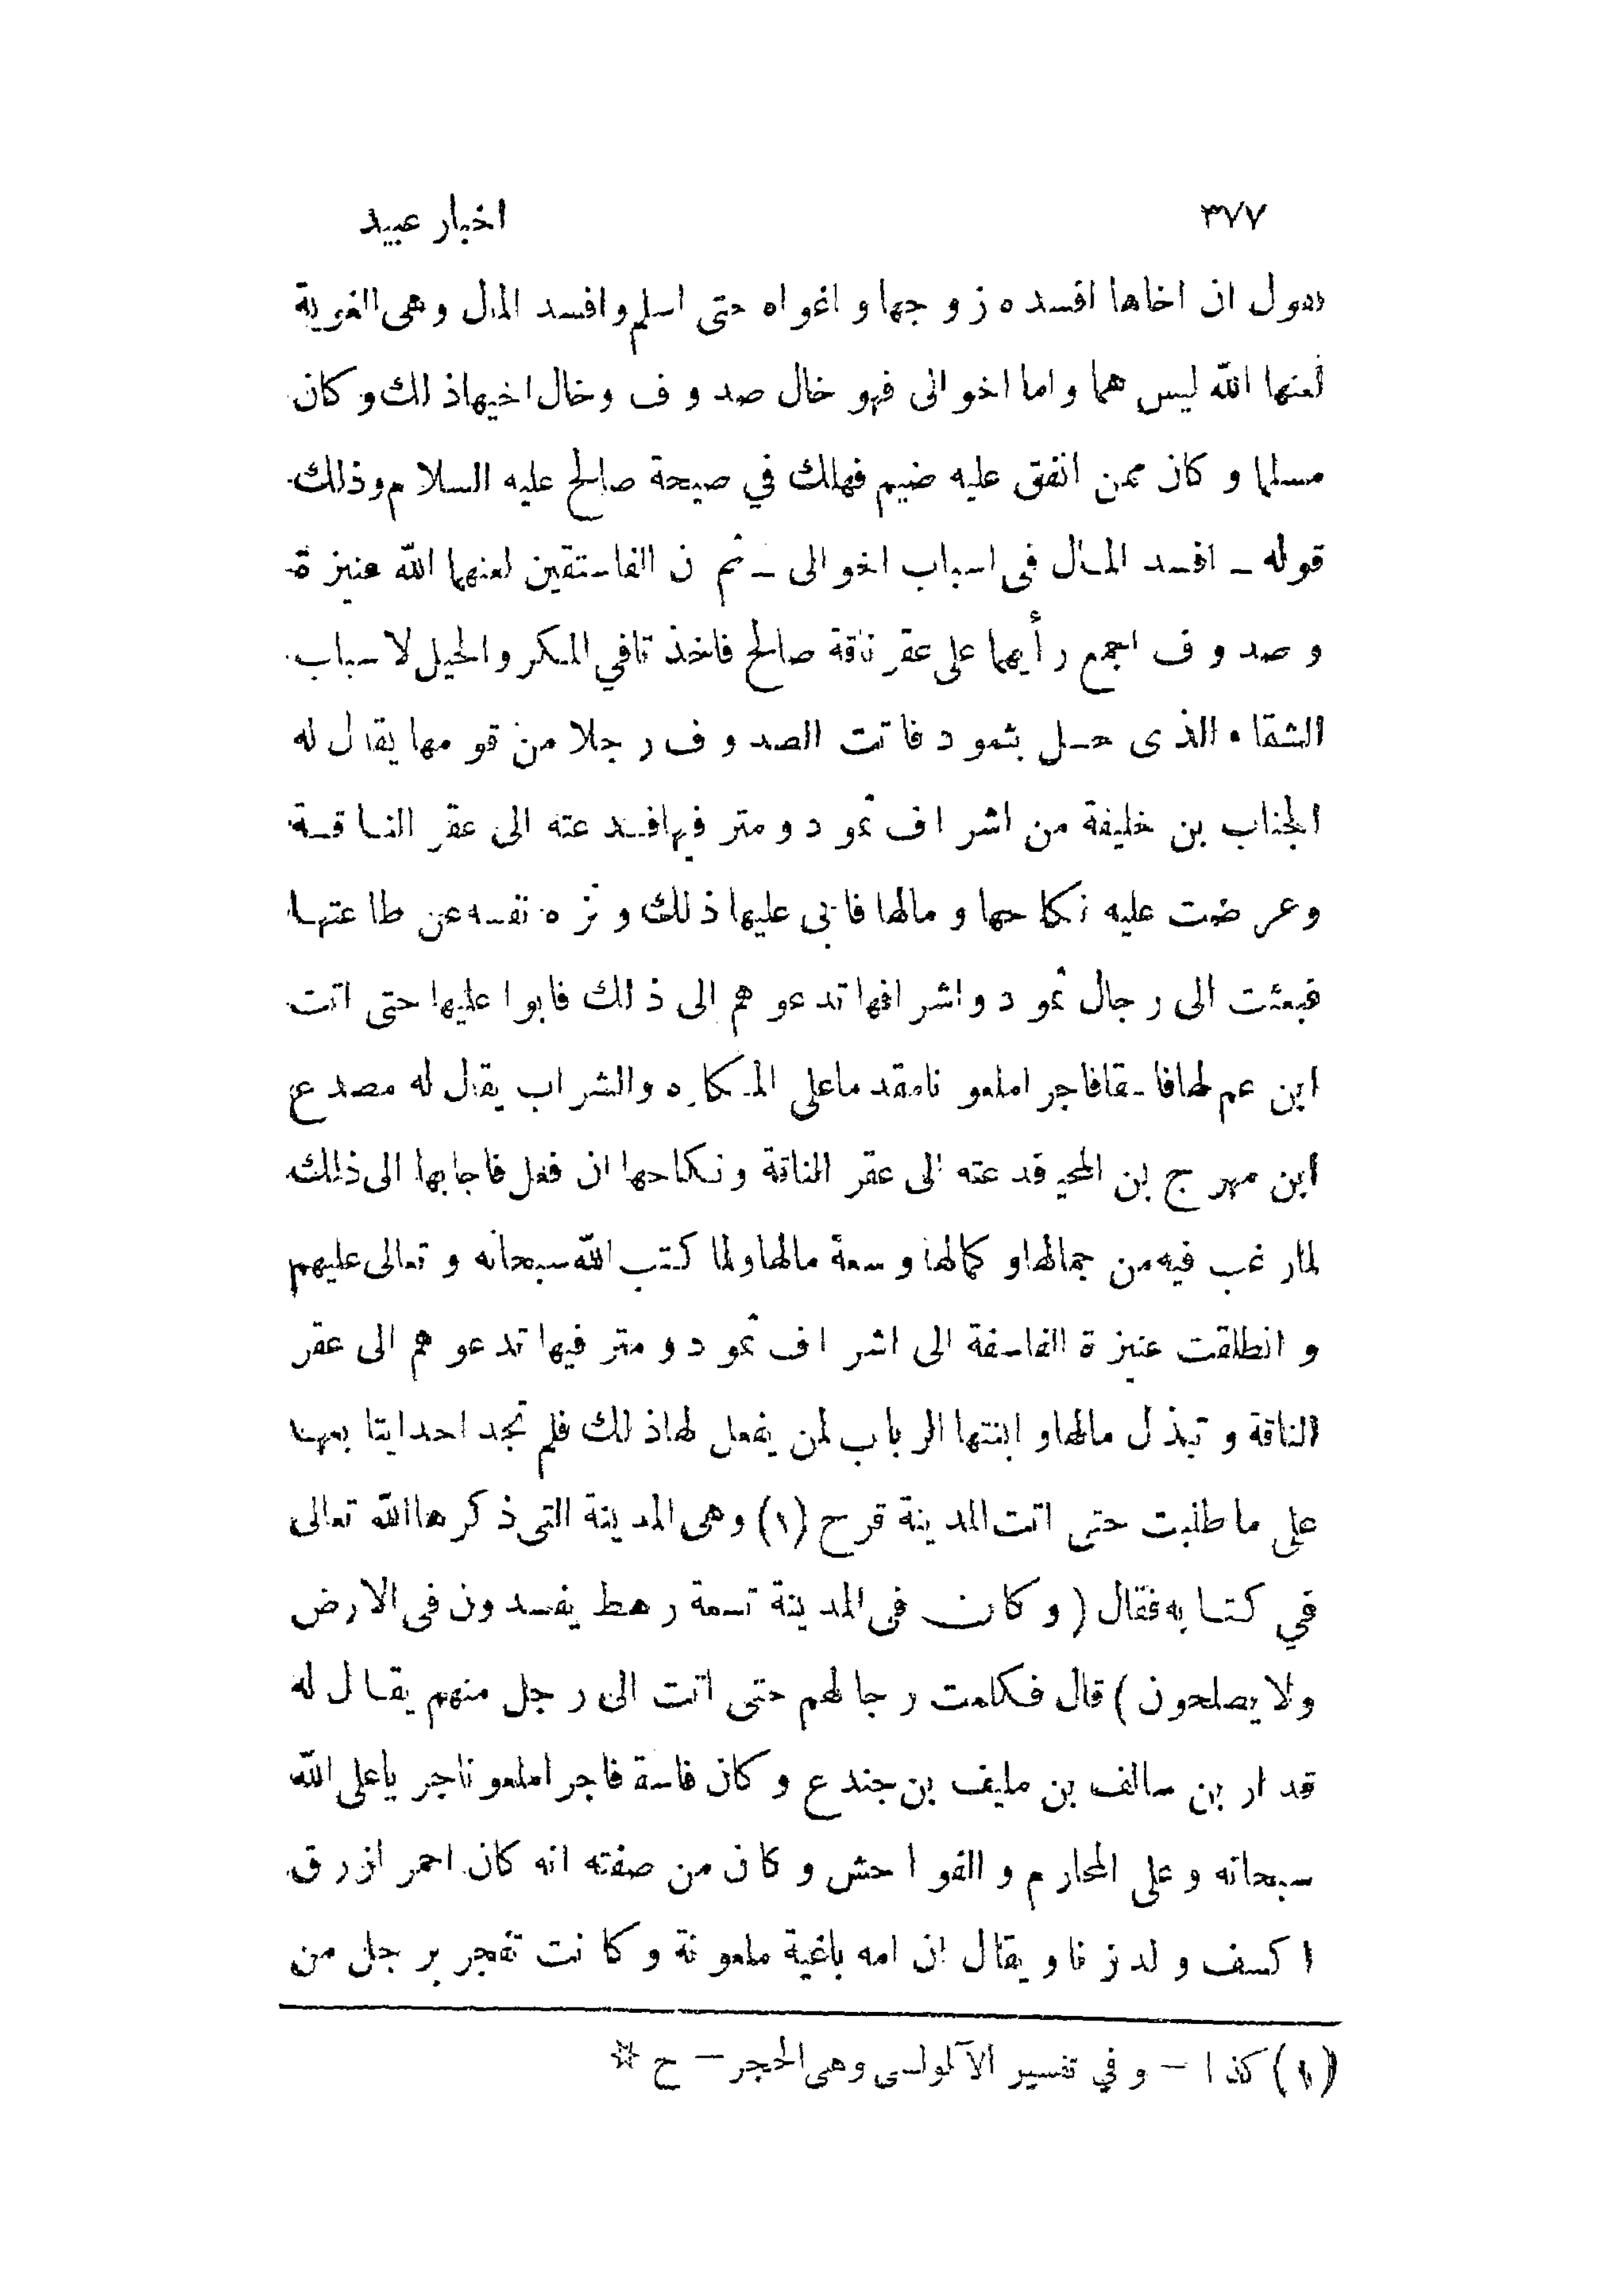 ٣٧٧ اخبار عبيد
تقول ان اخاها افسده زوجها واغواه حتى اسلم وافسد المال وهى الغوية
لعنها الله ليس هما واما اخوالى فهو خال صدوف وخال اخيها ذلك وكان
مسلما وكان ممن انفق عليه ضيم فهلك في صيحة صالح عليه السلام وذلك
قوله ــ افسد المال فى اسباب اخوالى ــ ثم ن الفاستقين لعنهما الله عنيزة
وصدوف اجمع رأيهما على عقر ناقة صالح فاتخذتا في المكر والحيل لاسباب
الشقاء الذى حل بثمود فاتت الصدوف رجلا من قومها يقال له
الجناب بن خليفة من اشراف ثمود ومتر فيها فدعته الى عقر الناقة
وعرضت عليه نكاحها ومالها فابى عليها ذلك ونزه نفسه عن طاعتها
فبعثت الى رجال ثمود واشرافها تدعوهم الى ذلك فابوا عليها حتى اتت
ابن عم لها فاسقا فاجرا ملعونا مقدما على المكاره والشراب يقال له مصدع
ابن مهرج بن المحيا فدعته الى عقر الناقة ونكاحها ان فعل فاجابها الى ذلك
لما رغب فيه من جمالها وكمالها وسعة مالها ولما كتب الله سبحانه وتعالى عليهم
وانطلقت عنيزة الفاسقة الى اشراف ثمود ومتر فيها تدعوهم الى عقر
الناقة وتبذل مالها وابنتها الرباب لمن يفعل لها ذلك فلم تجد احدا يتابعها
على ما طلبت حتى اتت المدينة قرح (١) وهى المدينة التى ذكرها الله تعالى
في كتابه فقال (وكان فى المدينة تسعة رهط يفسدون فى الارض
ولا يصلحون) قال فكلمت رجالهم حتى اتت الى رجل منهم يقال له
قدار بن سالف بن مليف بن جندع وكان فاسقا فاجرا ملعونا جريا على الله
سبحانه وعلى المحارم والفواحش وكان من صفته انه كان احمر ازرق
اكسف ولد زنا ويقال ان امه باغية ملعونة وكانت تفجر برجل من
(١) كذا – وفي تفسير الآلوسى وهى الحجر – ح *